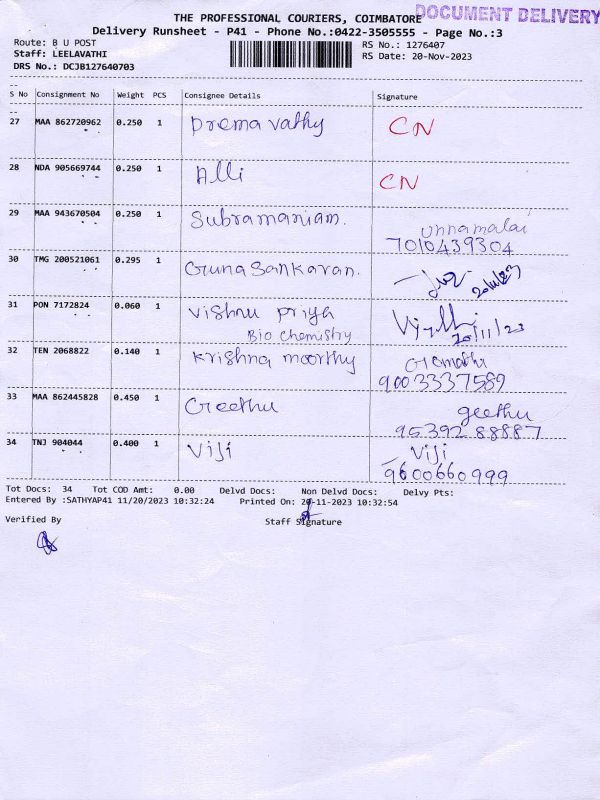 THE PROFESSIONAL COURIERS, COIMBATORE
DOCUMENT DELIVERY
Delivery Runsheet - P41 - Phone No.:0422-3505555 - Page No.:3
Route: B U POST
RS No.: 1276407
Staff: LEELAVATHI
RS Date: 20-Nov-2023
DRS No.: DCJB127640703
S No Consignment No Weight PCS Consignee Details Signature
27 MAA 862720962 0.250 1 Prema vathy CN
28 NDA 905669744 0.250 1 Alli CN
29 MAA 943670504 0.250 1 Subramaniam. Unnamalai
7010439304
30 TMG 200521061 0.295 1 Guna Sankaran. 20/11/23
31 PON 7172824 0.060 1 Vishnu Priya
Bio chemistry 20/11/23
32 TEN 2068822 0.140 1 Krishna moorthy Gomathi
9003337589
33 MAA 862445828 0.450 1 Geethu geethu
95392 88887
34 TNJ 904044 0.400 1 Viji Viji
9600660999
Tot Docs: 34 Tot COD Amt: 0.00 Delvd Docs: Non Delvd Docs: Delvy Pts:
Entered By :SATHYAP41 11/20/2023 10:32:24 Printed On: 20-11-2023 10:32:54
Verified By Staff Signature